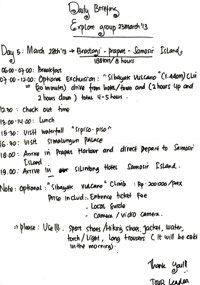 Daily Briefing
Explore group 23 March '13
Day 5: March 28th '13 → Brastagi - Prapat - Samosir Island,
180km / 8 hours
06.00-07.00: Breakfast
07.00-12.00: Optional Excursion: "Sibayak Vulcano" (2.400m) Climb
(30 minutes) drive from hotel/town and (2 hours up and
2 hours down) total 4-5 hours.
12.30: check out time
13.00-14.00: Lunch
15.30: Visit waterfall "Sipiso-piso"
16.30: Visit Simalungun Palace
18.00: Arrive in Prapat Harbour and direct depart to Samosir
Island
19.00: Arrive in Silintong Hotel Samosir Island.
Note: Optional: "Sibayak Vulcano" Climb: Rp 200.000/pax
Price include: Entrance ticket fee
- Local Guide
- Camera / video camera.
→ please: Use!!! Sport shoes/hiking shoe, jacket, water,
torch/light, long trousers (It will be cold
in the morning).
Thank you!!
Tour Leader